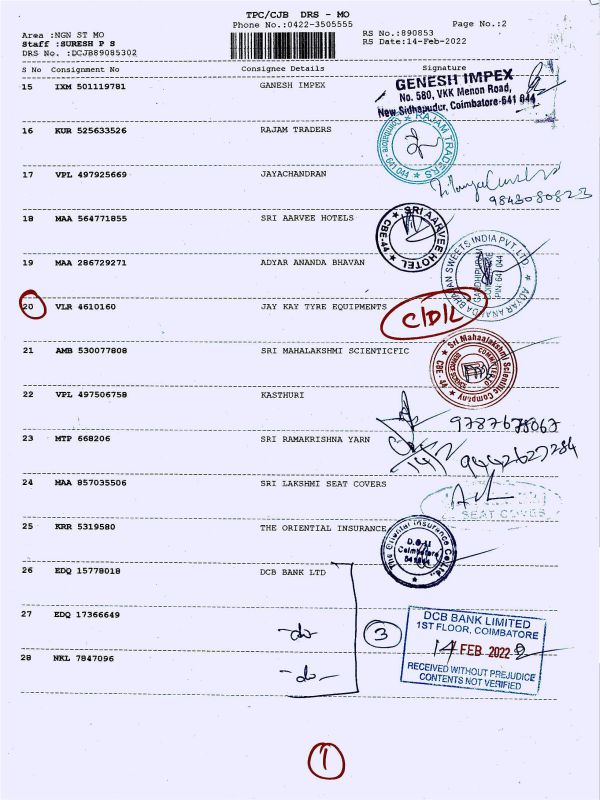 TPC/CJB DRS - MO
Phone No.:0422-3505555
Page No.:2
Area :NGN ST MO
Staff :SURESH P S
DRS No. :DCJB89085302
RS No.:890853
RS Date:14-Feb-2022
S No Consignment No Consignee Details Signature
15 IXM 501119781 GANESH IMPEX
GENESH IMPEX
No. 580, VKK Menon Road,
New Sidhapudur, Coimbatore-641 044
16 KUR 525633526 RAJAM TRADERS
RAJAM TRADERS
Coimbatore - 641 044
17 VPL 497925669 JAYACHANDRAN
9843080823
18 MAA 564771855 SRI AARVEE HOTELS
SRI AARVEE HOTEL
CBE-44
19 MAA 286729271 ADYAR ANANDA BHAVAN
ADYAR ANANDA BHAVAN SWEETS INDIA PVT. LTD
GANDHIPURAM
PIN: 641 044
20 VLR 4610160 JAY KAY TYRE EQUIPMENTS
C/D/L
21 AMB 530077808 SRI MAHALAKSHMI SCIENTICFIC
Sri Mahaalakshmi Scientific Company
CBE - 44
22 VPL 497506758 KASTHURI
9787678067
23 MTP 668206 SRI RAMAKRISHNA YARN
14/2
9442627284
24 MAA 857035506 SRI LAKSHMI SEAT COVERS
SEAT COVERS
25 KRR 5319580 THE ORIENTIAL INSURANCE
The Oriental Insurance Co. Ltd.
Coimbatore
26 EDQ 15778018 DCB BANK LTD
27 EDQ 17366649 -do-
3
DCB BANK LIMITED
1ST FLOOR, COIMBATORE
14 FEB 2022
RECEIVED WITHOUT PREJUDICE
CONTENTS NOT VERIFIED
28 NKL 7847096 -do-
1